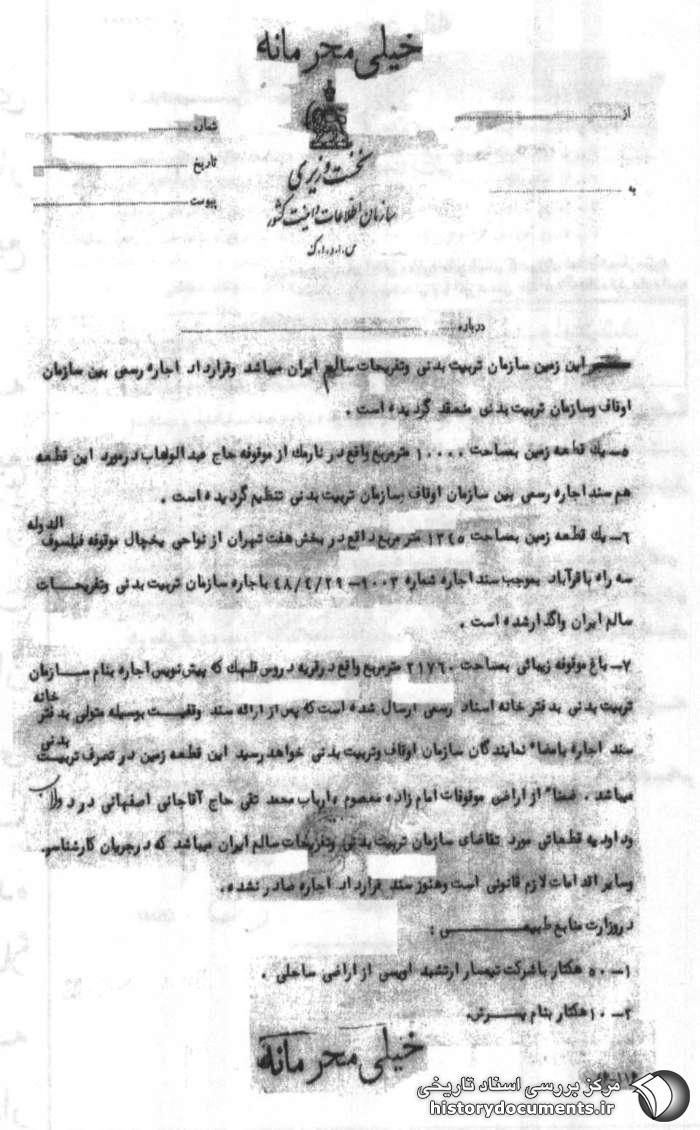 خیلی محرمانه
از
شماره
تاریخ
به
پیوست
نخست وزیری
سازمان اطلاعات و امنیت کشور
س.ا.و.ا.ک
درباره
این زمین سازمان تربیت بدنی وتفریحات سالم ایران میباشد وقرارداد اجاره رسمی بین سازمان
اوقاف وسازمان تربیت بدنی منعقد گردیده است .
۵ـ یک قطعه زمین بمساحت ۱۰۰۰۰ مترمربع واقع در نارمک از موقوفه حاج عبدالوهاب درمورد این قطعه
هم سند اجاره رسمی بین سازمان اوقاف وسازمان تربیت بدنی تنظیم گردیده است .
۶ـ یک قطعه زمین بمساحت ۱۳۴۵ متر مربع واقع در بخش هفت تهران از نواحی یخچال موقوفه فیلسوف الدوله
سه راه باقرآباد بموجب سند اجاره شماره ۹۰۰۳ـ ۴۸/۴/۲۹ باجاره سازمان تربیت بدنی وتفریحات
سالم ایران واگذارشده است .
۷ـ باغ موقوفه زیبائی بمساحت ۲۱۷۶۰ مترمربع واقع درقریه دروس قلهک که پیش نویس اجاره بنام سازمان
تربیت بدنی بدفتر خانه اسناد رسمی ارسال شده است که پس از ارائه سند وقفیت بوسیله متولی بدفتر خانه
سند اجاره بامضاء نمایندگان سازمان اوقاف وتربیت بدنی خواهد رسید این قطعه زمین در تصرف تربیت بدنی
میباشد . ضمناً از اراضی موقوفات امام زاده معصوم وارباب محمد تقی حاج آقاجانی اصفهانی در دولاب
وداودیه قطعاتی مورد تقاضای سازمان تربیت بدنی وتفریحات سالم ایران میباشد که درجریان کارشناسی
وسایر اقدامات لازم قانونی است وهنوز سند قرارداد اجاره صادر نشده .
دروزارت منابع طبیعی :
۱ـ ۵۰ هکتار باشرکت تیمسار ارتشبد اویسی از اراضی ساحلی .
۲ـ ۱۰ هکتار بنام پسرش.
خیلی محرمانه
مرکز بررسی اسناد تاریخی
historydocuments.ir